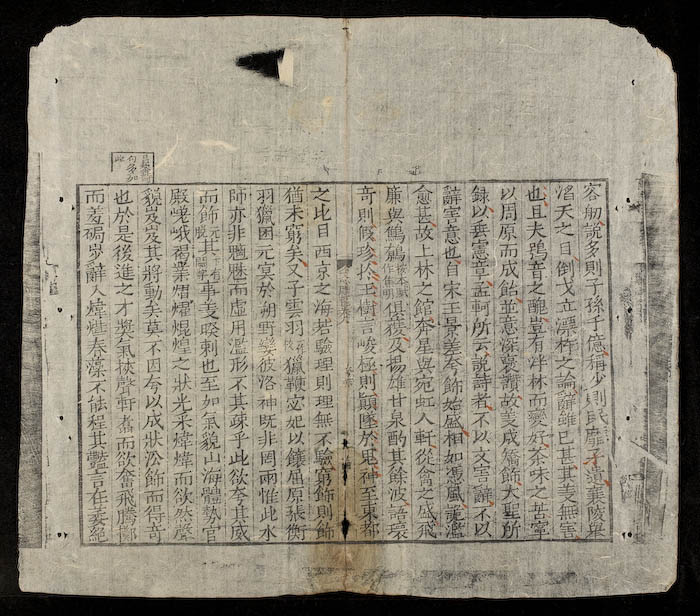 容舠說多則子孫千億稱少則民靡孑遺襄陵舉
滔天之目倒戈立漂杵之論辭雖已甚其義無害
也且夫鴞音之醜豈有泮林而變好荼味之苦寧
以周原而成飴並意深褒讚故義成矯飾大聖所
録以垂憲章孟軻所云說詩者不以文害辭不以
辭害意也自宋玉景差夸飾始盛相如憑風詭濫
愈甚故上林之館奔星與宛虹入軒從禽之盛飛
廉與鷦鷯按本賦作焦明俱獲及揚雄甘泉酌其餘波語瓌
竒則假珍於玉樹言峻極則顛墜於鬼神至東都
之比目西京之海若驗理則理無不驗窮飾則飾
猶未窮矣又子雲羽獵鞭宓妃以饟屈原張衡
羽獵困元冥於朔野孌彼洛神既非罔兩惟此水
師亦非魑魅而虛用濫形不其疎乎此欲夸其威
而飾元脫其下有闕字事義睽剌也至如氣貌山海體勢宮
殿嵯峨揭業熠燿焜煌之狀光采煒煒而欲然聲
貌岌岌其將動矣莫不因夸以成狀㳂飾而得竒
也於是後進之才奬氣挾聲軒翥而欲奮飛騰擲
而羞跼步辭入煒燁春藻不能程其豔言在萎絶